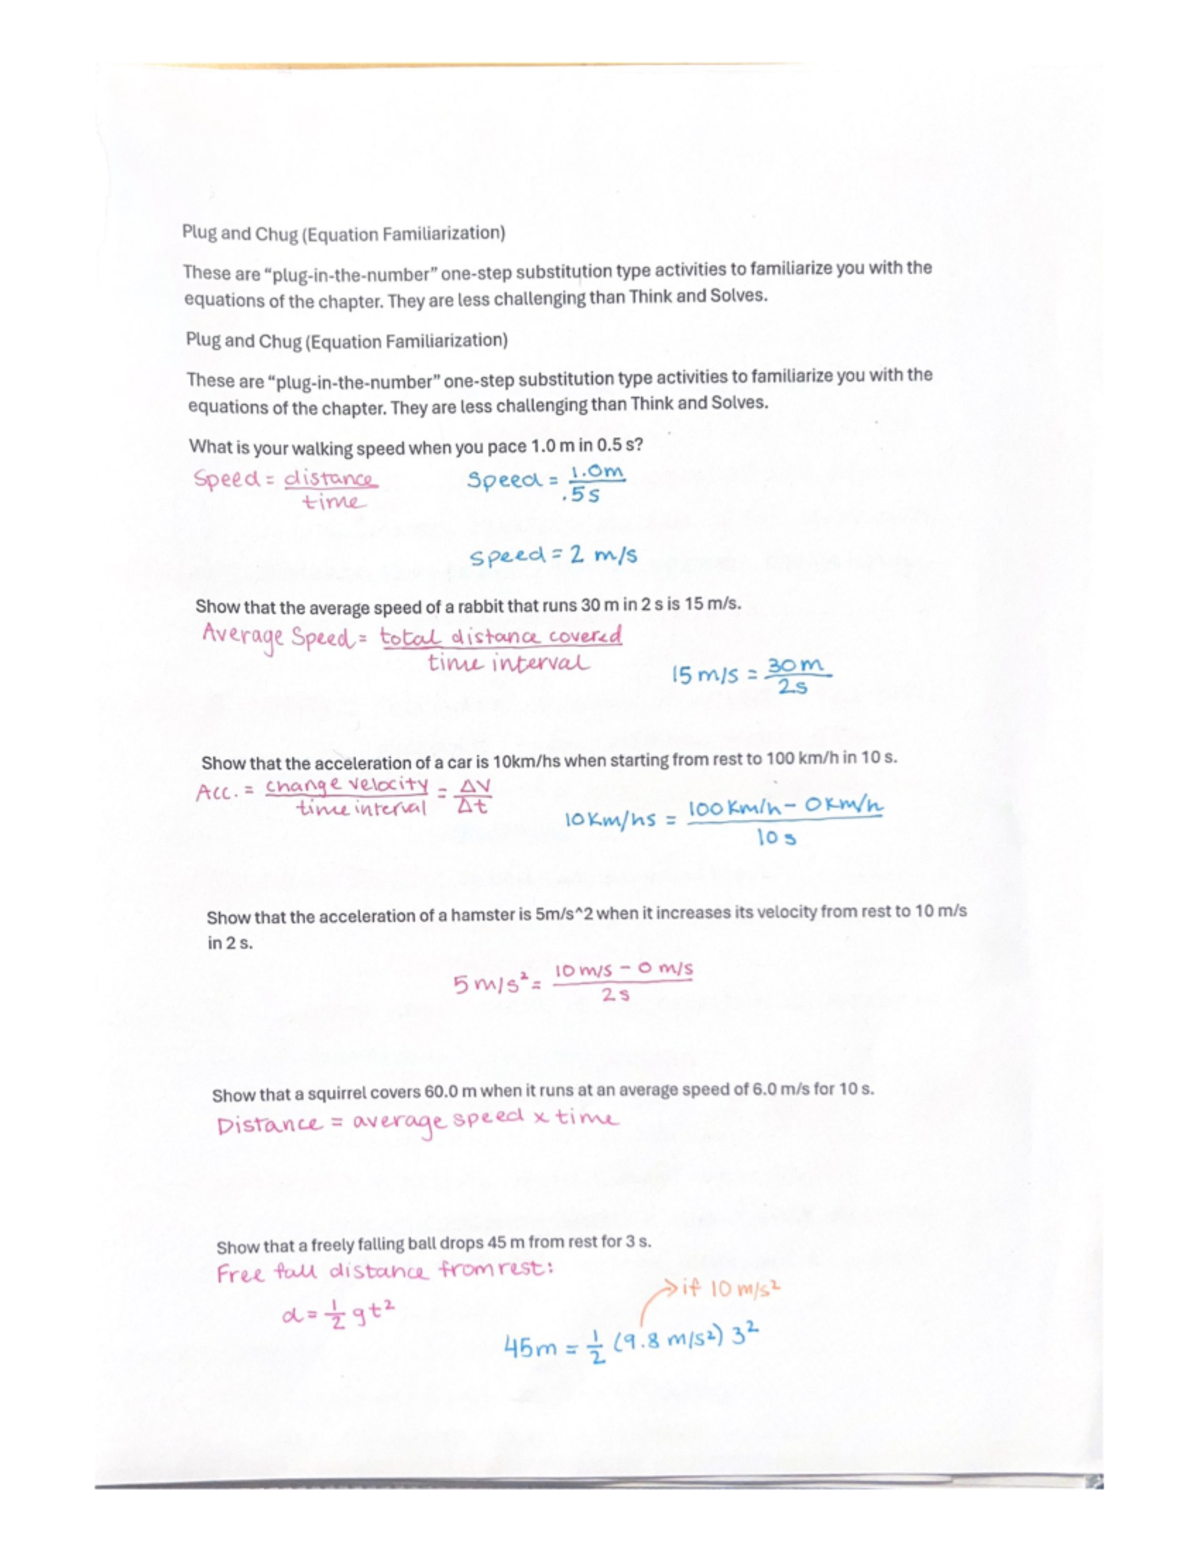 Plug and Chug (Equation Familiarization)
These are “plug-in-the-number” one-step substitution type activities to familiarize you with the
equations of the chapter. They are less challenging than Think and Solves.
Plug and Chug (Equation Familiarization)
These are “plug-in-the-number” one-step substitution type activities to familiarize you with the
equations of the chapter. They are less challenging than Think and Solves.
What is your walking speed when you pace 1.0 m in 0.5 s?
Speed = distance / time
Speed = 1.0m / .5s
speed = 2 m/s
Show that the average speed of a rabbit that runs 30 m in 2 s is 15 m/s.
Average Speed = total distance covered / time interval
15 m/s = 30m / 2s
Show that the acceleration of a car is 10km/hs when starting from rest to 100 km/h in 10 s.
Acc. = change velocity / time interval = ΔV / Δt
10Km/hs = 100Km/h - 0Km/h / 10 s
Show that the acceleration of a hamster is 5m/s^2 when it increases its velocity from rest to 10 m/s
in 2 s.
5 m/s² = 10 m/s - 0 m/s / 2s
Show that a squirrel covers 60.0 m when it runs at an average speed of 6.0 m/s for 10 s.
Distance = average speed x time
Show that a freely falling ball drops 45 m from rest for 3 s.
Free fall distance from rest:
→if 10 m/s²
d = 1/2 gt²
45m = 1/2 (9.8 m/s²) 3²